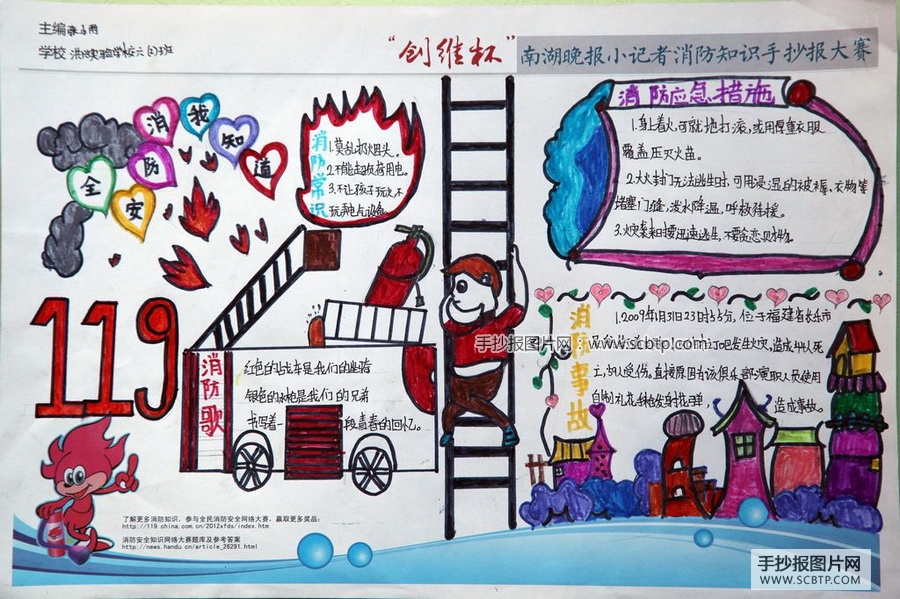 主编
学校
"创维杯" 南湖晚报小记者消防知识手抄报大赛
消防安全我知道
119
消防常识
1.莫乱扔烟头。
2.不能超负荷用电。
3.不让孩子玩火不
玩弄电气设备。
消防应急措施
1.身上着火,可就地打滚,或用厚重衣服
覆盖压灭火苗。
2.大火封门无法逃生时,可用浸湿的被褥、衣物等
堵塞门缝,泼水降温,呼救待援。
3.火灾袭来时要迅速逃生,不要贪恋财物。
消防歌
红色的战车是我们的
银色的水枪是我们的兄弟
书写着一段青春的回忆。
消防事故
1.2009年1月31日23时55分,位于福建省长乐市
发生火灾,造成
直接原因为该俱乐部演职人员使用
自制礼花手枪发射礼花弹,
造成事故。
手抄报图片网:www.scbtp.com
了解更多消防知识,参与全民消防安全网络大赛,赢取更多奖品:
http://119.china.com.cn/2012xfds/index.htm
消防安全知识网络大赛题库及参考答案
http://news.handu.cn/article_26291.html
手抄报图片网
WWW.SCBTP.COM